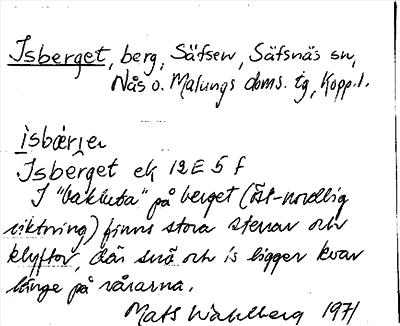 Isberget, berg, Säfsen, Säfsnäs sn,
Nås o. Malungs doms. tg, Kopp. l.
ìsbæ̀rjen
Isberget ek 12E 5f
I "bakluta" på berget (öst-nordlig
riktning) finns stora stenar och
klyftor, där snö och is ligger kvar
länge på vårarna.
Mats Wahlberg 1971